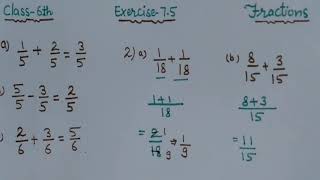 Class-6th Exercise-7.5 Fractions
a) 1/5 + 2/5 = 3/5
5/5 - 3/5 = 2/5
2/6 + 3/6 = 5/6
2) a) 1/18 + 1/18
1+1/18
= 2 1/18 9 ⇒ 1/9
(b) 8/15 + 3/15
8+3/15
= 11/15